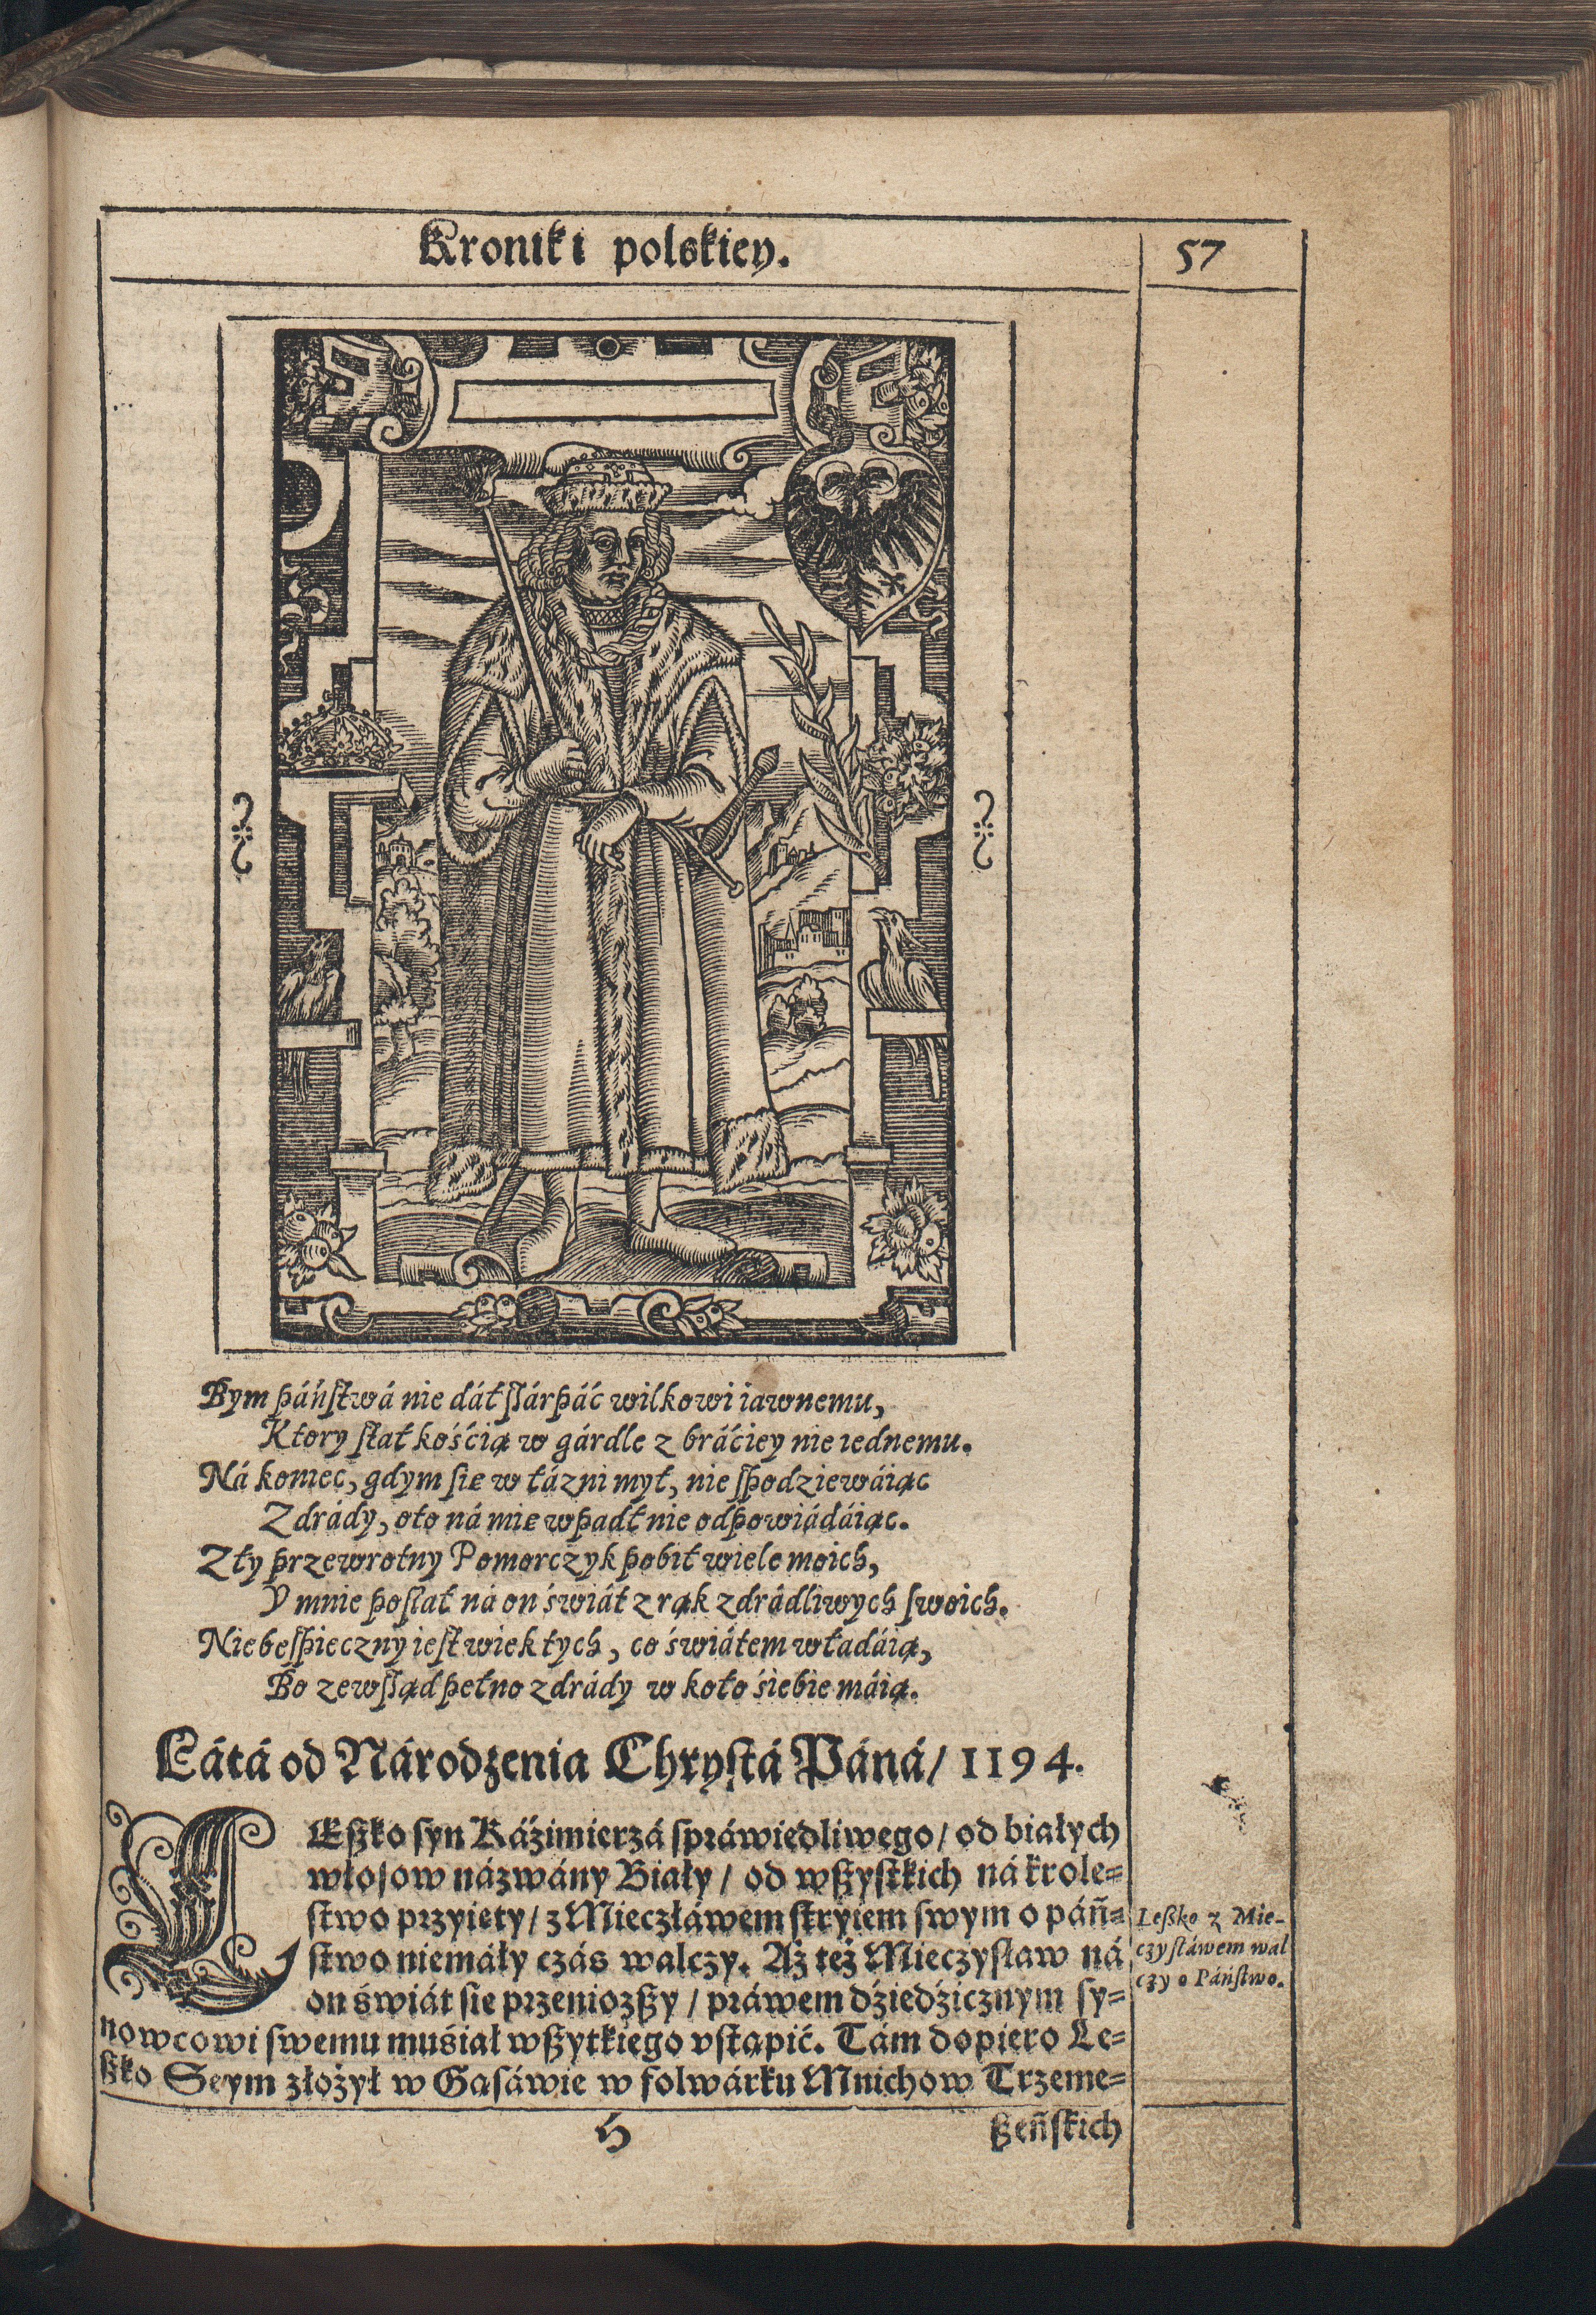 Kroniki polskiey.
57
Bym páńſtwá nie dáł ſſárpáć wilkowi iawnemu,
Ktory ſtał kośćią w gárdle z bráćiey nie iednemu.
Ná koniec, gdym ſie w łázni mył, nie ſpodziewáiąc
Zdrády, oto ná mie wpadł nie odpowiádáiąc.
Zły przewrotny Pomorczyk pobił wiele moich,
Y mnie poſłał ná on świát z rąk zdrádliwych ſwoich.
Niebeſpieczny ieſt wiek tych, co świátem władáią,
Bo zewſſąd pełno zdrády w koło śiebie máią.
Látá od Národzenia Chryſtá Páná/ 1194.
LEſzko ſyn Káźimierzá ſpráwiedliwego/ od białych
włoſow názwány Biały/ od wſzyſtkich ná krole⸗
ſtwo przyięty/ z Mieczłáwem ſtryiem ſwym o páń⸗
ſtwo niemáły czás walczy. Aż też Mieczyſław ná
on świát ſie przeniozſzy/ práwem dźiedźicznym ſy⸗
nowcowi ſwemu muśiał wſzytkiego vſtąpić. Tám dopiero Le⸗
ſzko Seym złożył w Gąſáwie w folwárku Mnichow Trzeme⸗
Leſzko z Mie-
czyſłáwem wal
czy o Páńſtwo.
H
ſzeńſkich